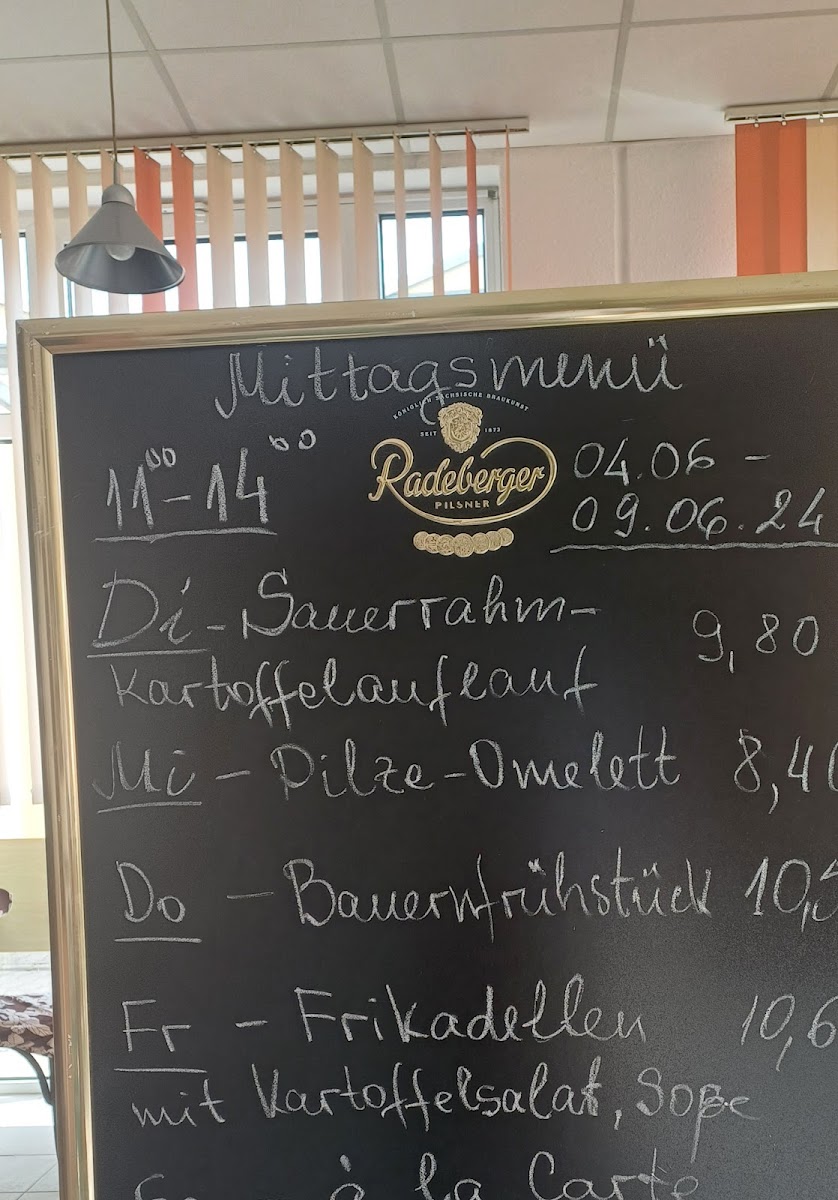 Mittagsmenü
KÖNIGLICH SÄCHSISCHE BRAUKUNST
SEIT 1872
Radeberger
PILSNER
11⁰⁰-14⁰⁰
04.06 -
09.06.24
Di - Sauerrahm- 9,80
Kartoffelauflauf
Mi - Pilze-Omelett 8,40
Do - Bauernfrühstück 10,5
Fr - Frikadellen 10,6
mit Kartoffelsalat, Soße
à la Carte